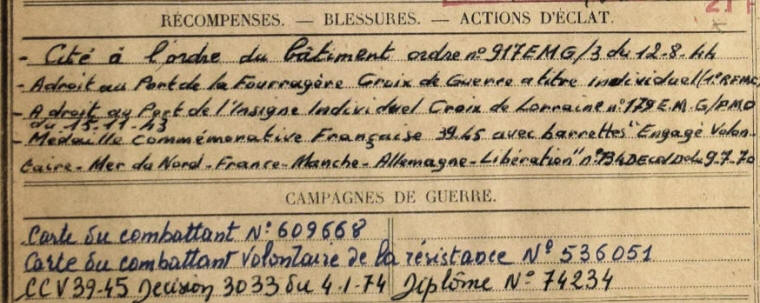 RÉCOMPENSES. — BLESSURES. — ACTIONS D'ÉCLAT.
- Cité à l'ordre du bâtiment ordre n° 917 EMG/3 du 12-8-44
- A droit au Port de la Fourragère Croix de Guerre a titre individuel (1° RFMC)
- A droit au Port de l'Insigne Individuel Croix de Lorraine n° 179 E.M.G/PMO
du 13-11-43
- Médaille Commémorative Française 39.45 avec barrettes "Engagé Volon-
taire - Mer du Nord - France - Manche - Allemagne - Libération" du 9-7-70
CAMPAGNES DE GUERRE.
Carte du combattant N° 609668
Carte du combattant volontaire de la résistance N° 536051
CCV 39-45 Decision 3033 du 4-1-74 Diplôme N° 74234